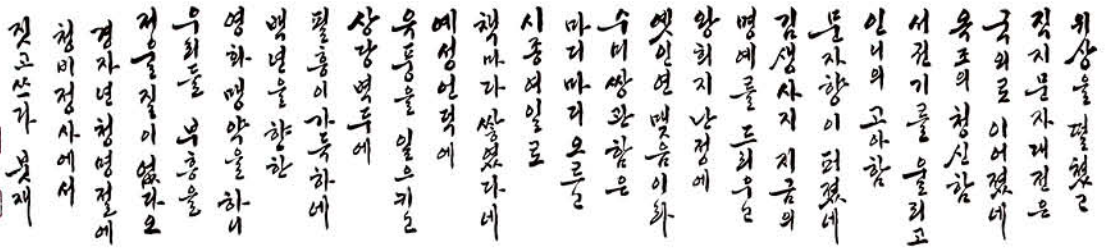 위상을 떨쳤고
직지문자대전은
국외로 이어졌네
옥조의 청신함
서권기를 울리고
인니의 고아함
문자향이 퍼졌네
김생사지 지금의
명예를 드리우는
왕희지 난정에
옛인연 맺음이라
수미쌍관함은
마디마디 오롯
시종여일로
책마다 쌓였다네
예성언덕에
육풍을 일으키는
상당벽두에
필흥이 가득하네
백년을 향한
영화 맹약을 하니
우리들 부흥을
저울질이 없다오
경자년 청명절에
청비정사에서
짓고쓰다 붓재